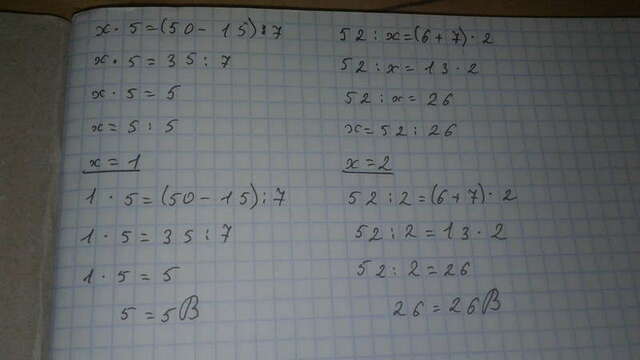 x · 5 = (50 - 15) : 7
x · 5 = 35 : 7
x · 5 = 5
x = 5 : 5
x = 1
1 · 5 = (50 - 15) : 7
1 · 5 = 35 : 7
1 · 5 = 5
5 = 5 В
52 : x = (6 + 7) · 2
52 : x = 13 · 2
52 : x = 26
x = 52 : 26
x = 2
52 : 2 = (6 + 7) · 2
52 : 2 = 13 · 2
52 : 2 = 26
26 = 26 В